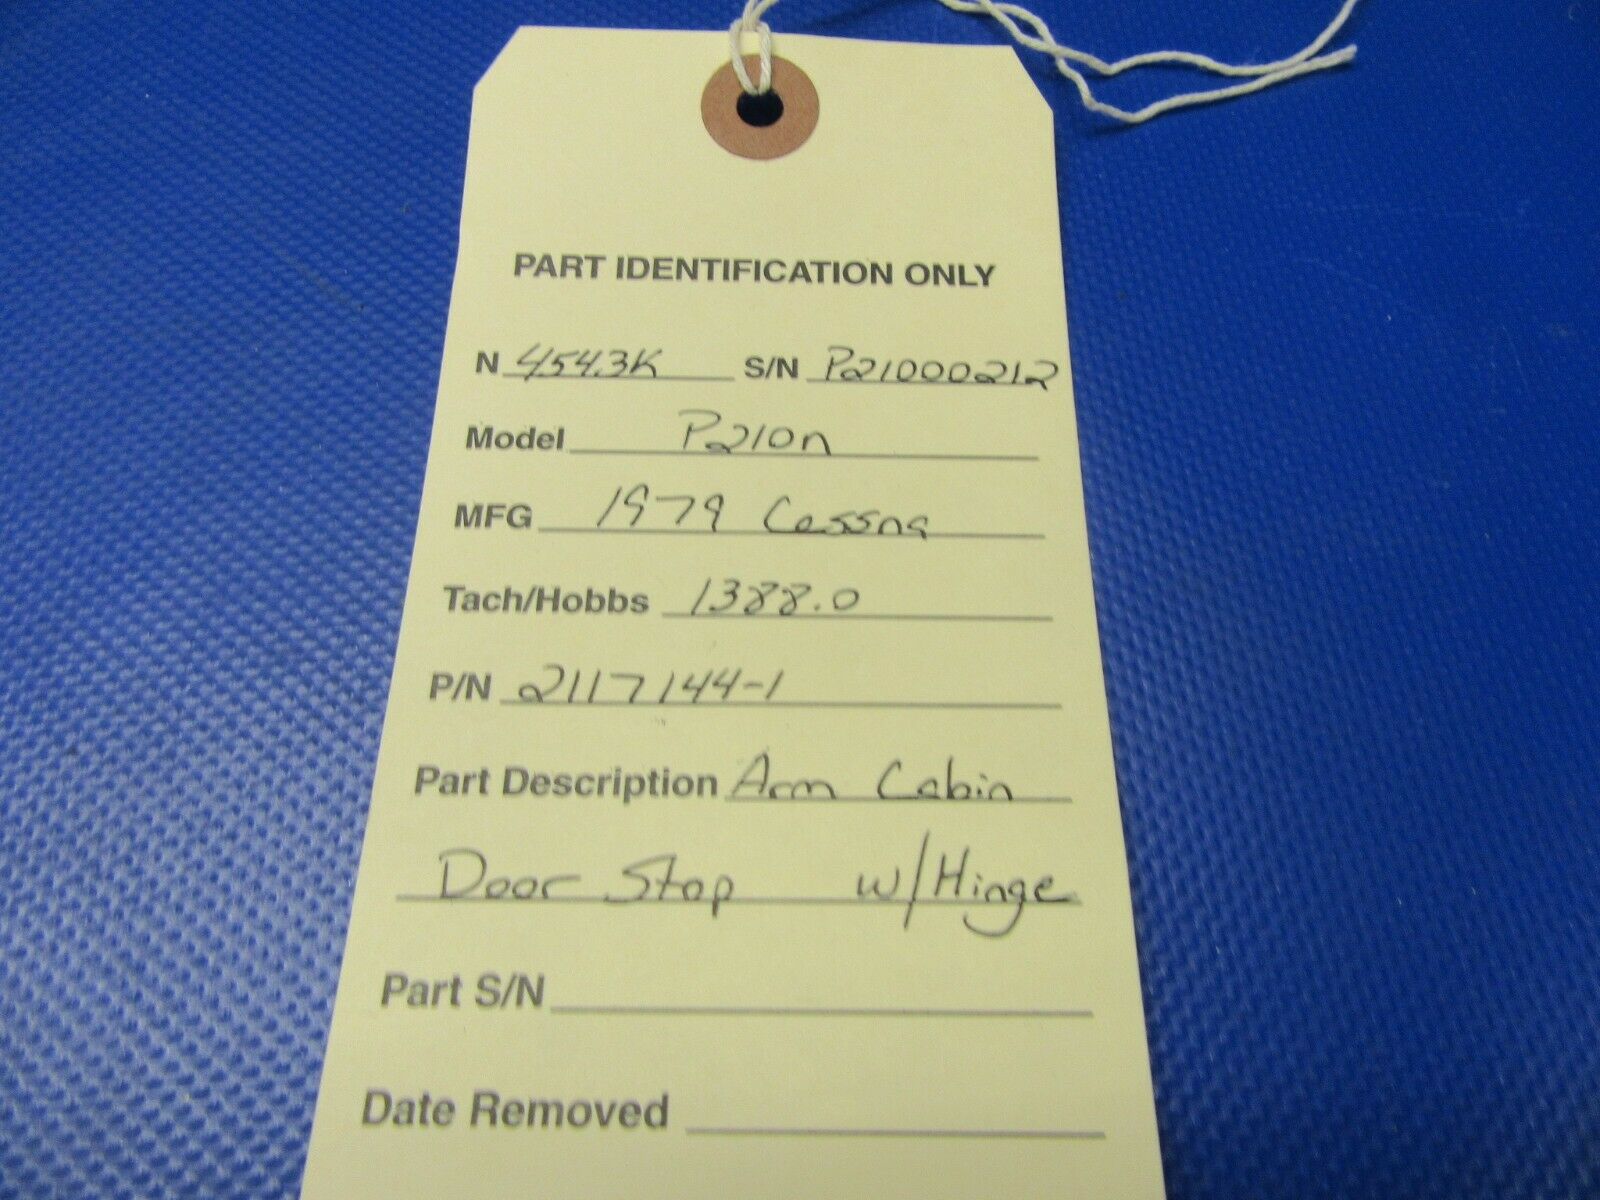 PART IDENTIFICATION ONLY
N 4543K S/N P21000212
Model P210n
MFG 1979 Cessna
Tach/Hobbs 1388.0
P/N 2117144-1
Part Description Arm Cabin
Door Stop w/Hinge
Part S/N
Date Removed